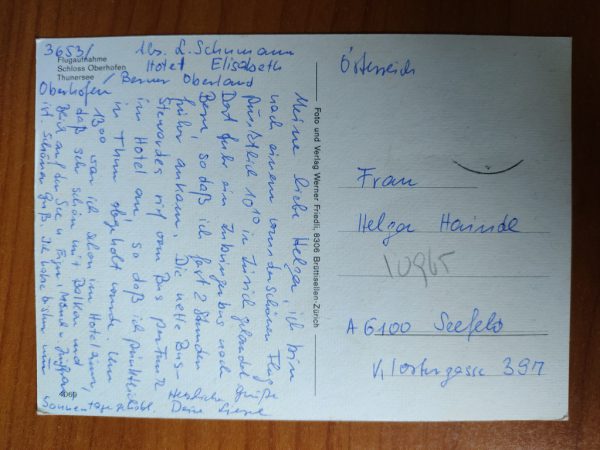 3653/
Abs. L. Schumann
Hotel Elisabeth
Oberhofen / Berner Oberland
Flugaufnahme
Schloss Oberhofen
Thunersee
Meine liebe Helga, ich bin
nach einem wunderschönen Fluge
pünktlich 10¹⁰ in Zürich gelandet.
Dort fuhr ein Zubringerbus nach
Bern, so daß ich fast 2 Stunden
früher ankam. Die nette Bus-
Stewardes rief vom Bus
im Hotel an, so daß ich pünktlich
in Thun abgeholt wurde. Um
13⁰⁰ war ich schon im Hotel
daß sehr schön mit Balkon und
Blick auf den See u. Eiger, Mönch u. Jungfrau
ist. Schönen Gruß Ich habe bisher nur
Sonnentage
Herzliche Grüße
Deine
4069
Foto und Verlag Werner Friedli, 8306 Brüttisellen-Zürich
Österreich
Frau
Helga Haindl
10965
A 6100 Seefeld
Klostergasse 397